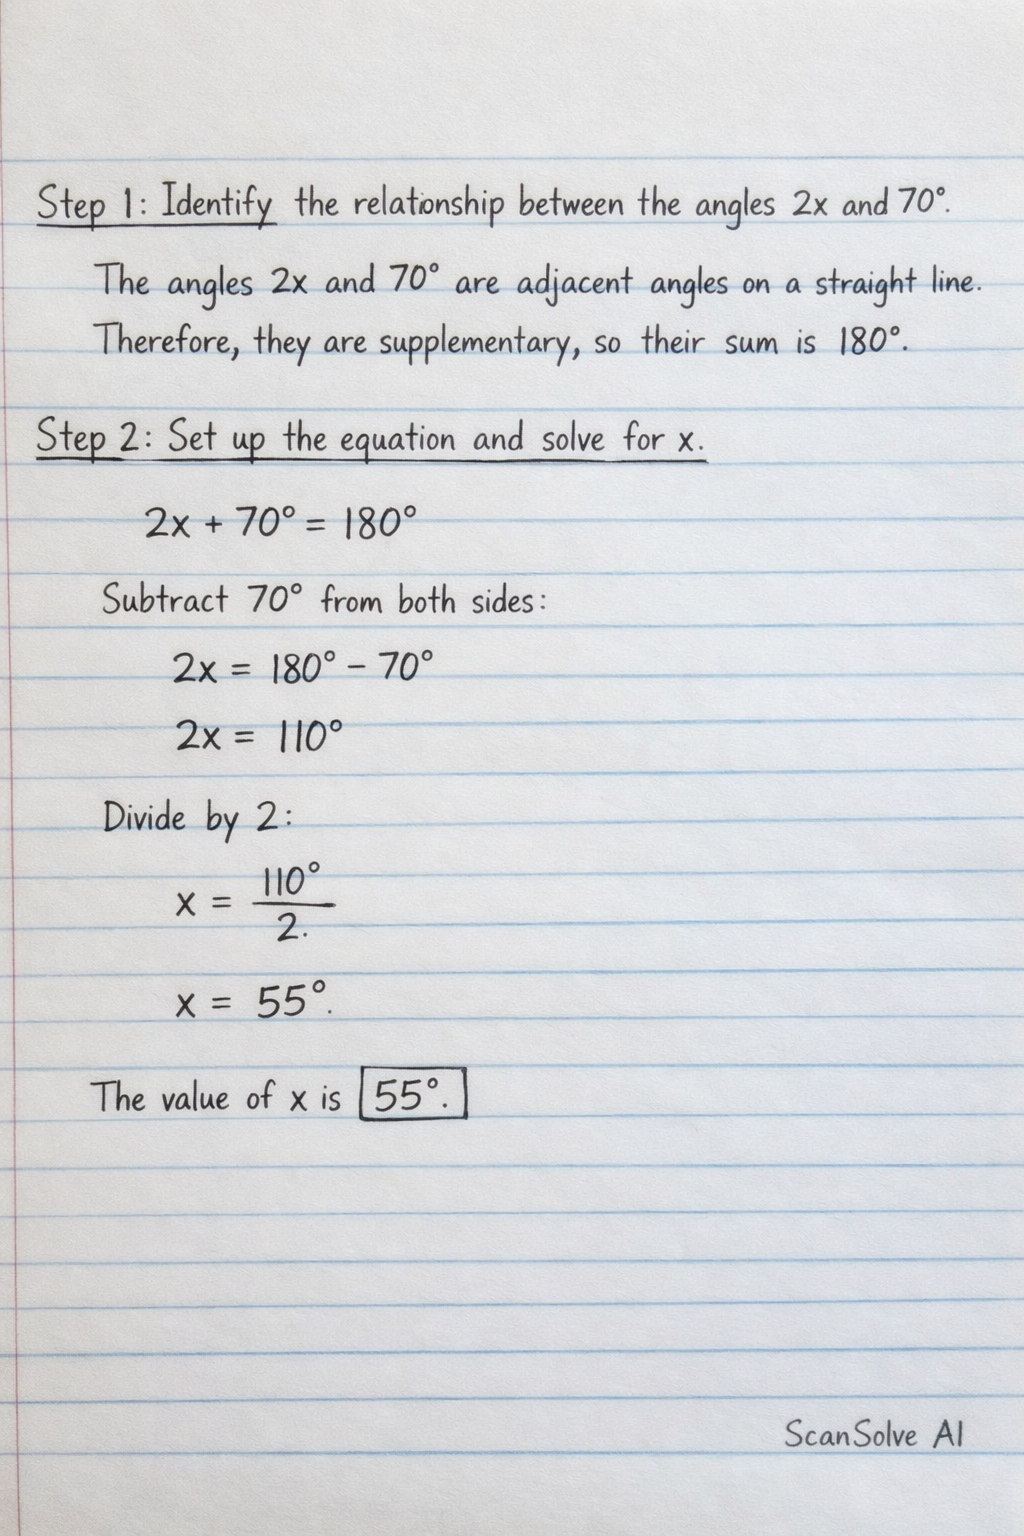 Step 1: Identify the relationship between the angles 2x and 70°.
The angles 2x and 70° are adjacent angles on a straight line.
Therefore, they are supplementary, so their sum is 180°.
Step 2: Set up the equation and solve for x.
2x + 70° = 180°
Subtract 70° from both sides:
2x = 180° − 70°
2x = 110°
Divide by 2:
x = 110°
2.
x = 55°.
The value of x is 55°.
ScanSolve AI